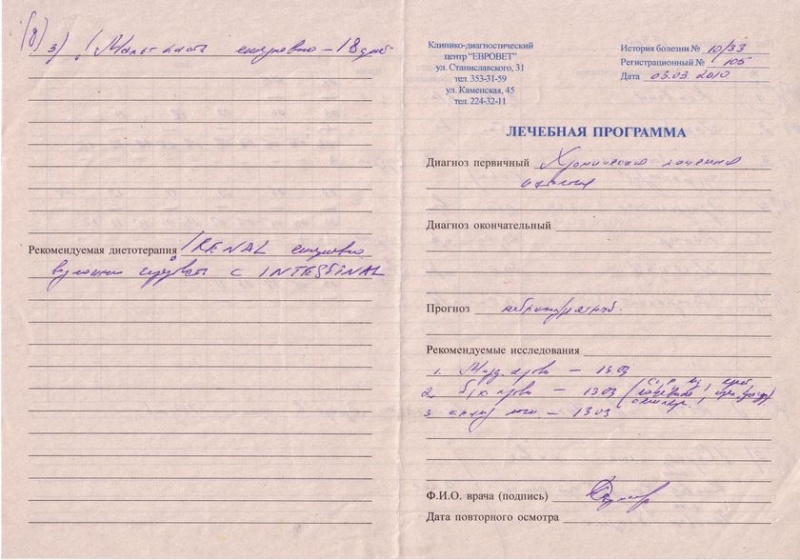 3) Мальт паста ежедневно – 18 дней
Рекомендуемая диетотерапия RENAL ежедневно
с INTESTINAL
Клинико-диагностический
центр "ЕВРОВЕТ"
ул. Станиславского, 31
тел. 353-31-59
ул. Каменская, 45
тел. 224-32-11
История болезни № 10/33
Регистрационный № 105
Дата 03.03.2010
ЛЕЧЕБНАЯ ПРОГРАММА
Диагноз первичный Хроническая почечная
Диагноз окончательный
Прогноз
Рекомендуемые исследования
1. крови – 13 03
2. б/х крови – 13 03
3. мочи – 13 03
Ф.И.О. врача (подпись)
Дата повторного осмотра